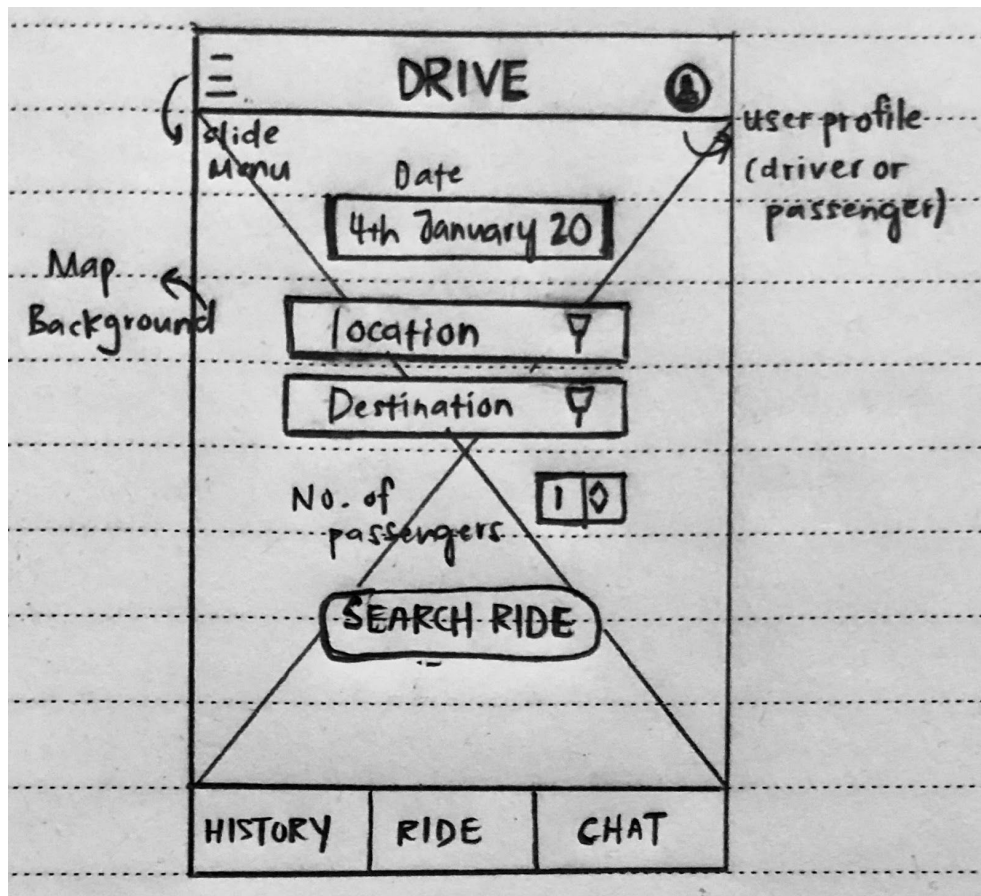 DRIVE
slide
Menu
user profile
(driver or
passenger)
Date
4th January 20
Map
Background
location
Destination
No. of
passengers
1
SEARCH RIDE
HISTORY
RIDE
CHAT